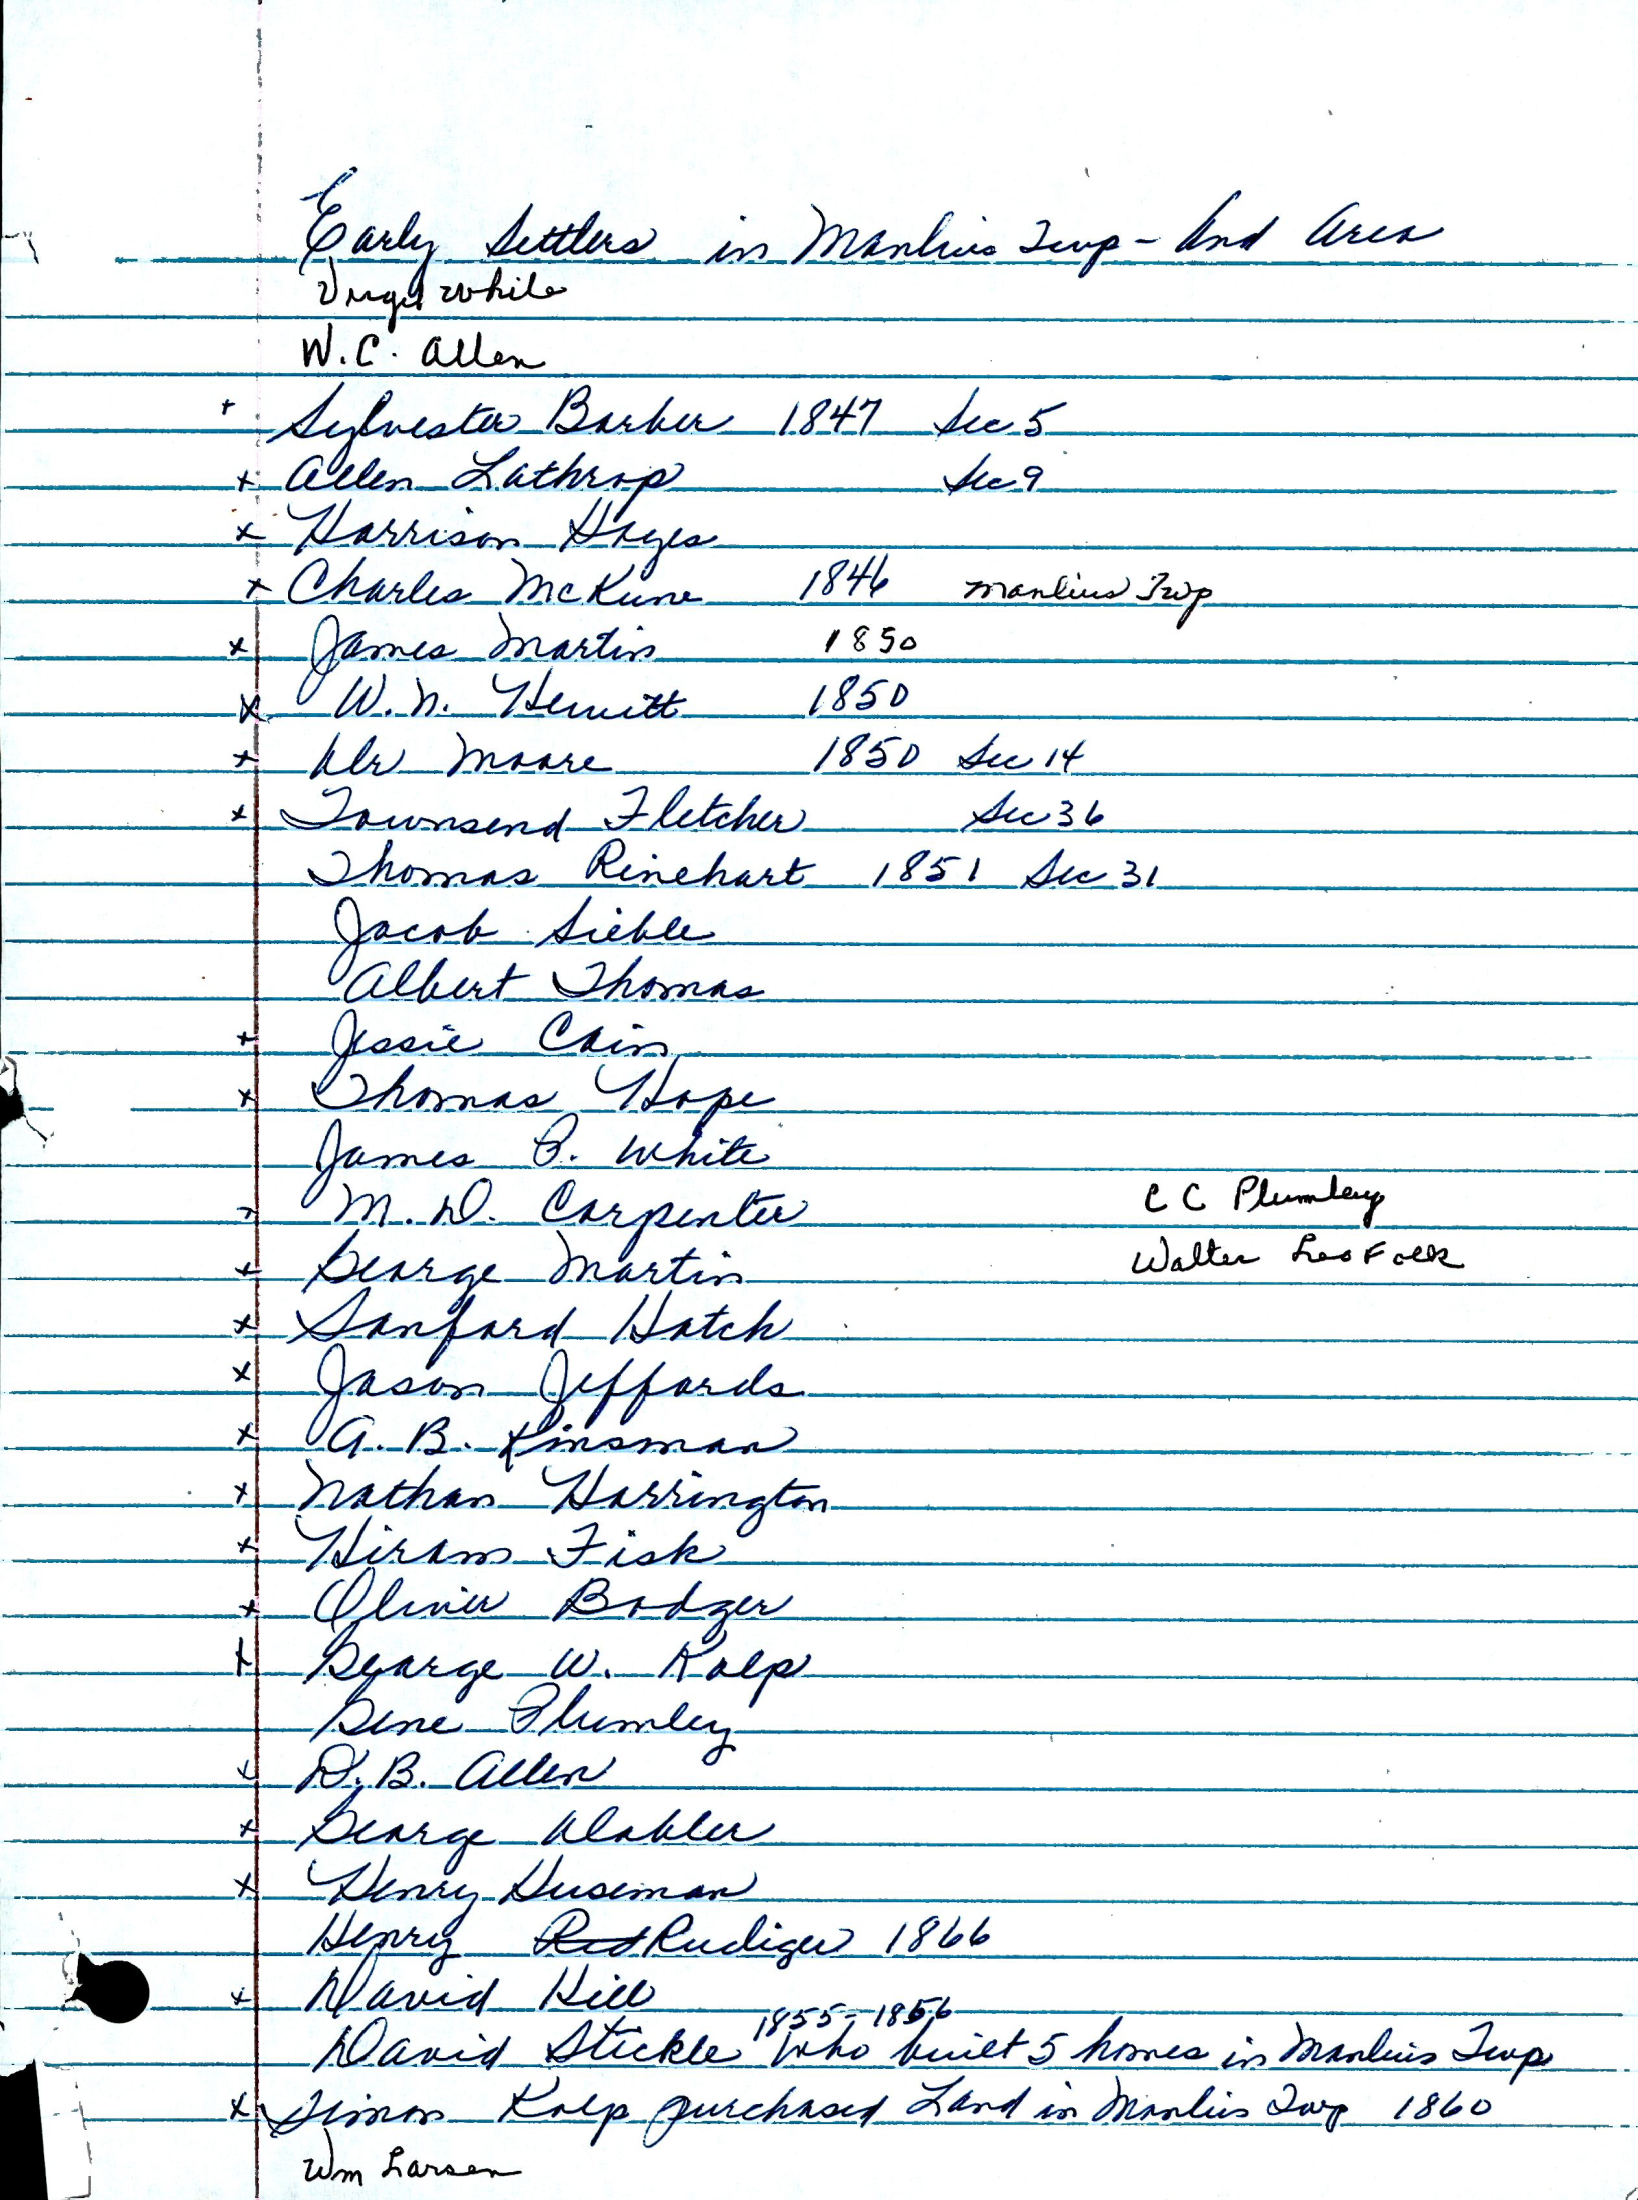 Early Settlers in Manlius Twp - And Area
Virgil White
W.C. Allen
+ Sylvester Barber 1847 Sec 5
x Allen Lathrop Sec 9
x Harrison Hayes
x Charles McKune 1846 Manlius Twp
x James Martin 1850
x W.N. Hewitt 1850
x Dr Moore 1850 Sec 14
x Townsend Fletcher Sec 36
Thomas Rinehart 1851 Sec 31
Jacob Sieble
Albert Thomas
x Jessie Cain
x Thomas Hope
James P. White
M.D. Carpenter C C Plumley
x George Martin Walter Leo Folk
x Sanford Hatch
x Jason Jeffords
x A.B. Kinsman
x Nathan Harrington
x Hiram Fisk
x Oliver Bodger
x George W. Kolp
Gene Plumley
x D.B. Allen
x George Dabler
x Henry Huseman
Henry Rudiger 1866
x David Hill
1855-1856
David Stickle who built 5 homes in Manlius Twp
x Simon Kolp purchased Land in Manlius Twp 1860
Wm Larsen